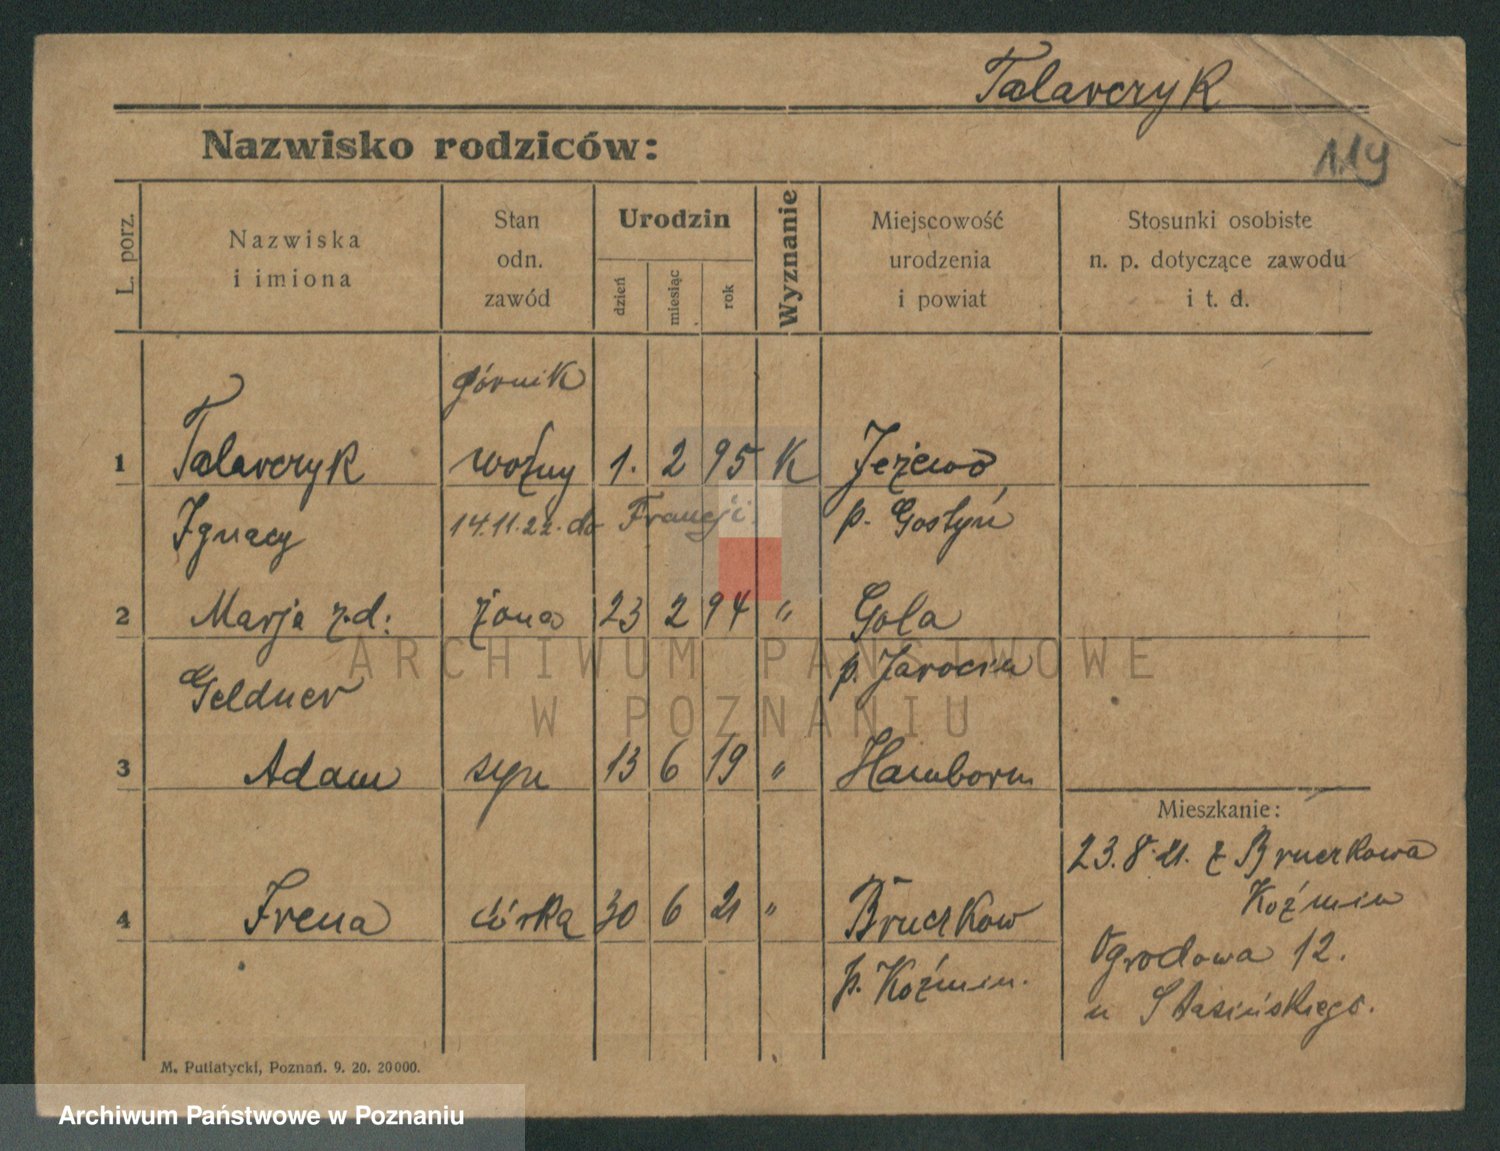 Talarczyk
Nazwisko rodziców:
119
L. porz.
Nazwiska
i imiona
Stan
odn.
zawód
Urodzin
dzień
miesiąc
rok
Wyznanie
Miejscowość
urodzenia
i powiat
Stosunki osobiste
n. p. dotyczące zawodu
i t. d.
górnik
1 Talarczyk woźny 1. 2 95 K Jeżewo
Ignacy 14.11.22. do Francji. p. Gostyń
2 Marja z.d. żona 23 2 94 " Gola
Geldner p. Jarocin
3 Adam syn 13 6 19 " Hamborn
Mieszkanie:
23.8.21. z Bruczkowa
Koźmin
4 Irena córka 30 6 21 " Bruczkow
Ogrodowa 12.
p. Koźmin.
u Stasińskiego.
M. Putiatycki, Poznań. 9. 20. 20000.
ARCHIWUM PAŃSTWOWE
W POZNANIU
Archiwum Państwowe w Poznaniu